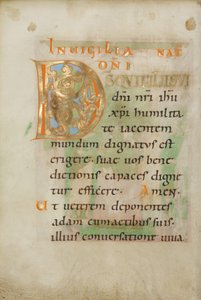 IN VIGILIA NAT
DÑI
D S QVI FILII SVI
dñi nri ihu
xpi humilita
te iacentem
mundum dignatus est
erigere. suae vos bene
dictionis capaces digne
tur efficere. Amen.
Ut veterem deponentes
adam cum actibus suis.
illius conversatione viva